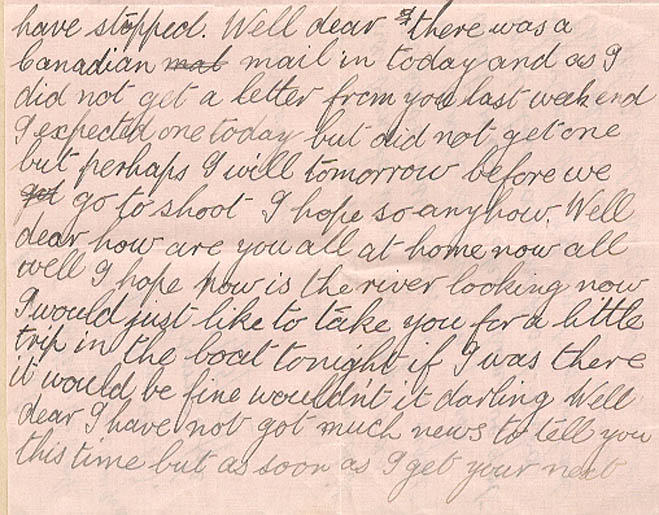 have stopped. Well dear there was a
Canadian mat mail in today and as I
did not get a letter from you last week end
I expected one today but did not get one
but perhaps I will tomorrow before we
got go to shoot I hope so anyhow. Well
dear how are you all at home now all
well I hope how is the river looking now
I would just like to take you for a little
trip in the boat tonight if I was there
it would be fine wouldn't it darling Well
dear I have not got much news to tell you
this time but as soon as I get your next